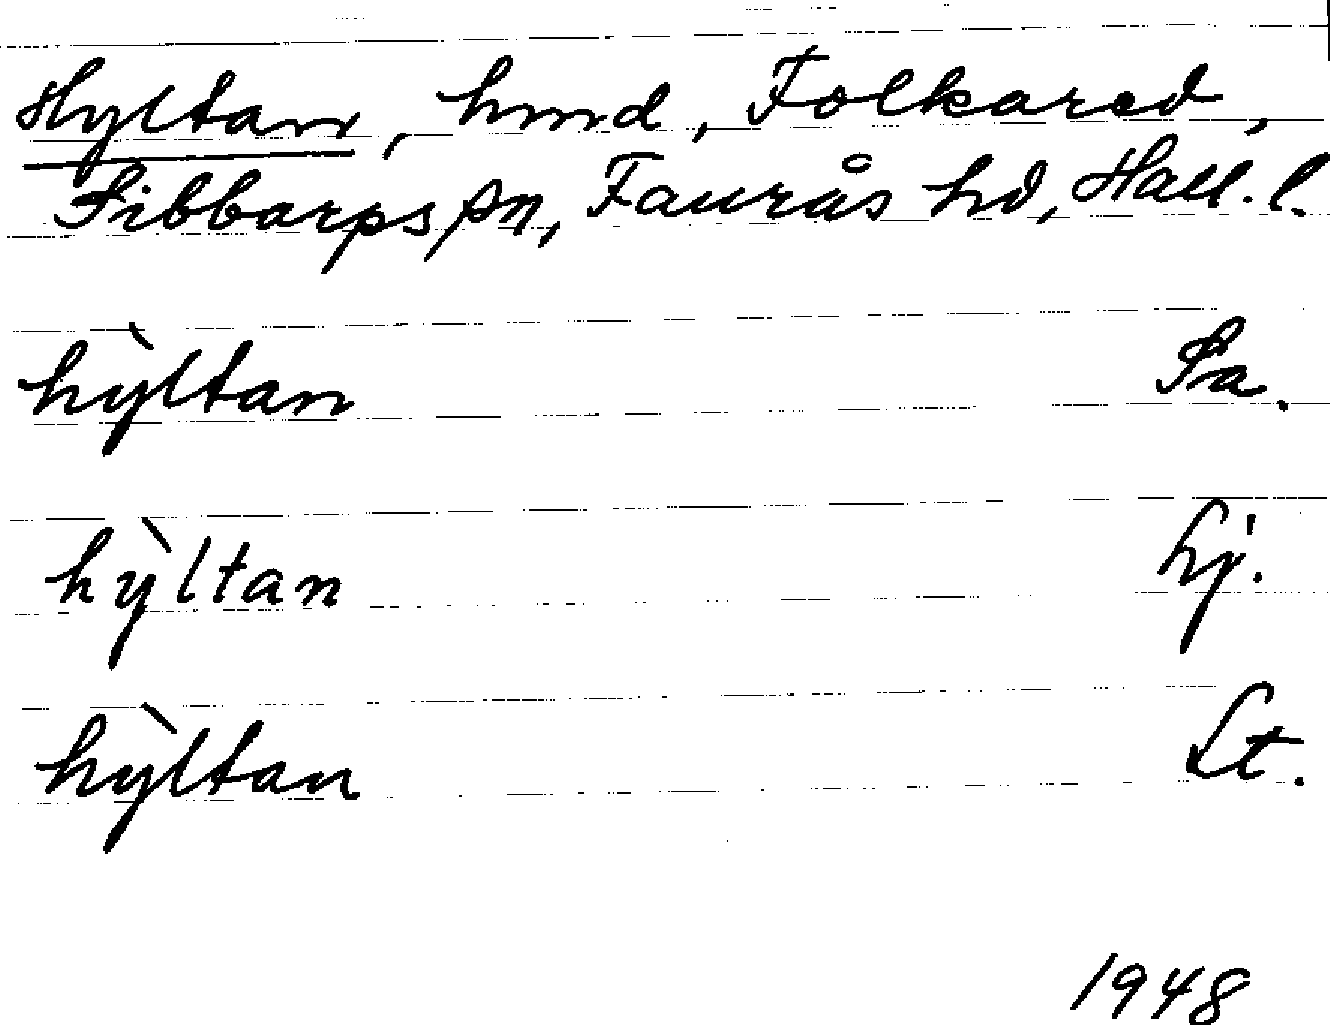 Hyltan, hmd, Folkared,
Sibbarps sn, Faurås hd, Hall. l.
hỳltan Sa.
hỳltan Hj.
hỳltan Lt.
1948